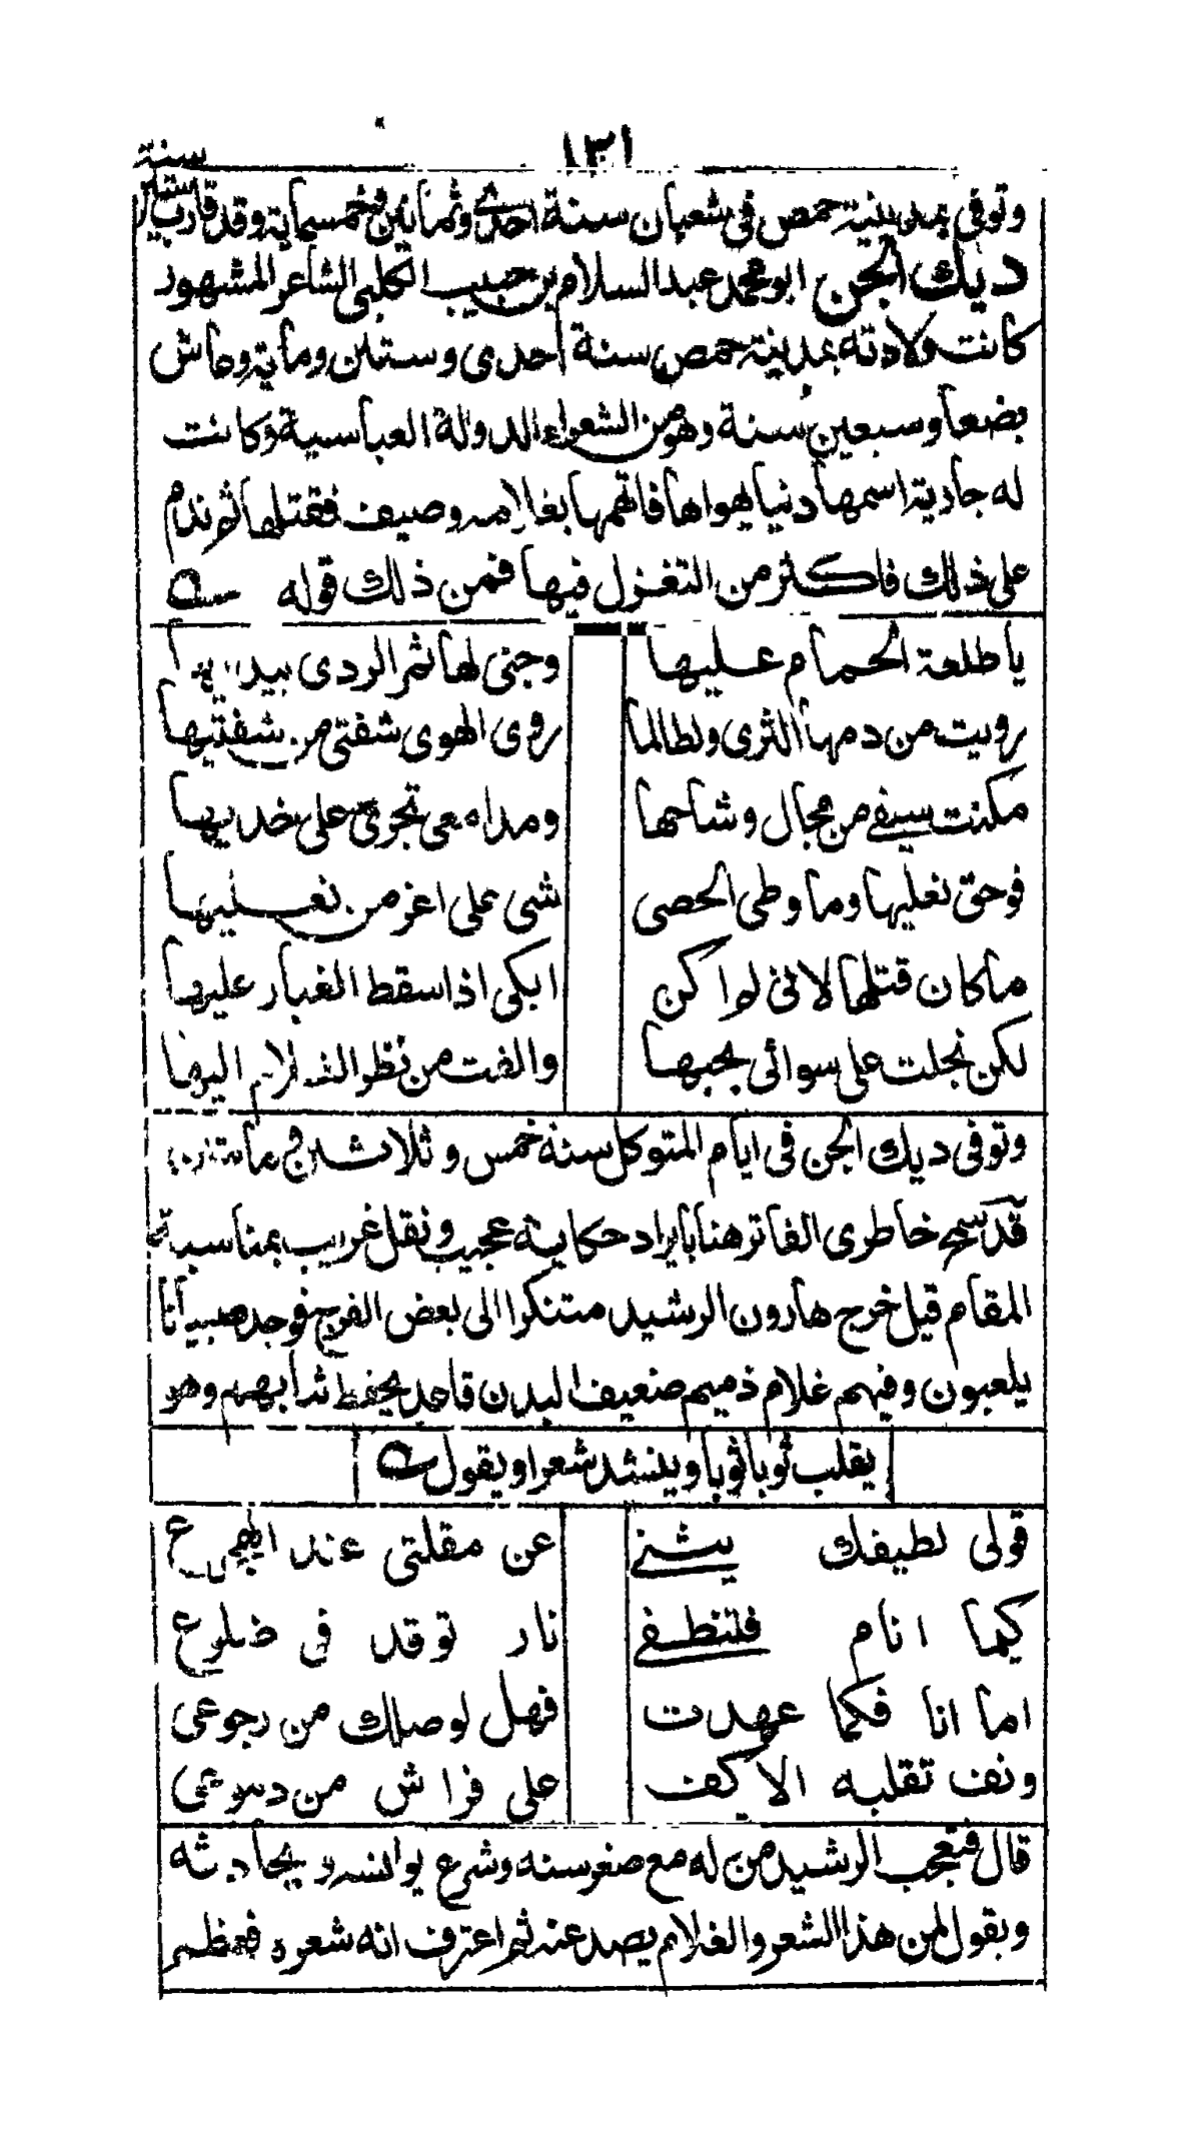 ١٣١
وتوفي بمدينة حمص في شعبان سنة احدى وثمانين وخمسماية وقد قارب ستين
سنة
ديك الجن ابو محمد عبد السلام بن حبيب الكلبي الشاعر المشهور
كانت ولادته بمدينة حمص سنة احدى وستين وماية وعاش
بضعا وسبعين سنة وهو من الشعراء الدولة العباسية وكانت
له جارية اسمها دنيا يهواها فاتهمها بغلامه وصيف فقتلها ثم ندم
على ذلك فاكثر من التغزل فيها فمن ذلك قوله
يا طلعة الحمام عليها وجنى لها ثمر الردى بيديها
رويت من دمها الثرى ولطالما روى الهوى شفتي من شفتيها
مكنت سيفي من مجال وشاحها ومدامعي تجري على خديها
فوحق نعليها وما وطى الحصى شى على اعز من نعليها
ما كان قتلها لاني لم اكن ابكي اذا سقط الغبار عليها
لكن بخلت على سوائي بحبها والفت من نظر الغلام اليها
وتوفي ديك الجن في ايام المتوكل سنة خمس وثلاثين ومائتين
قد سمح خاطري الفاتر هنا بايراد حكاية عجيب ونقل غريب بمناسبة
المقام قيل خرج هارون الرشيد متنكرا الى بعض الفرج فوجد صبيانا
يلعبون وفيهم غلام ذميم ضعيف البدن قاعد يحفظ ثيابهم وهو
يقلب ثوبا ثوبا وينشد شعرا ويقول
قولي لطيفك ينثني عن مقلتي عند الهجوع
كيما انام فتنطفي نار توقد في ضلوعي
اما انا فكما عهدت فهل لوصلك من رجوعي
ونف تقلبه الاكف على فراش من دموعي
قال فتعجب الرشيد من له مع صغر سنه وشرع يوانسه ويحادثه
ويقول لمن هذا الشعر والغلام يصد عنه ثم اعترف انه شعره فعظم